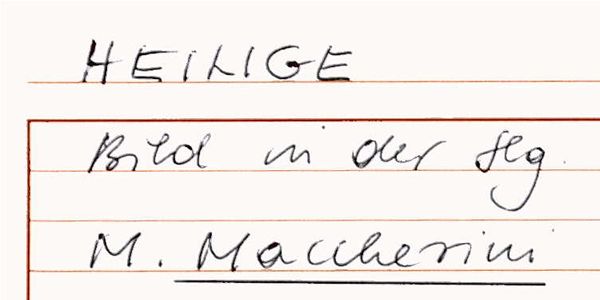 HEILIGE
Bild in der Slg.
M. Maccherini